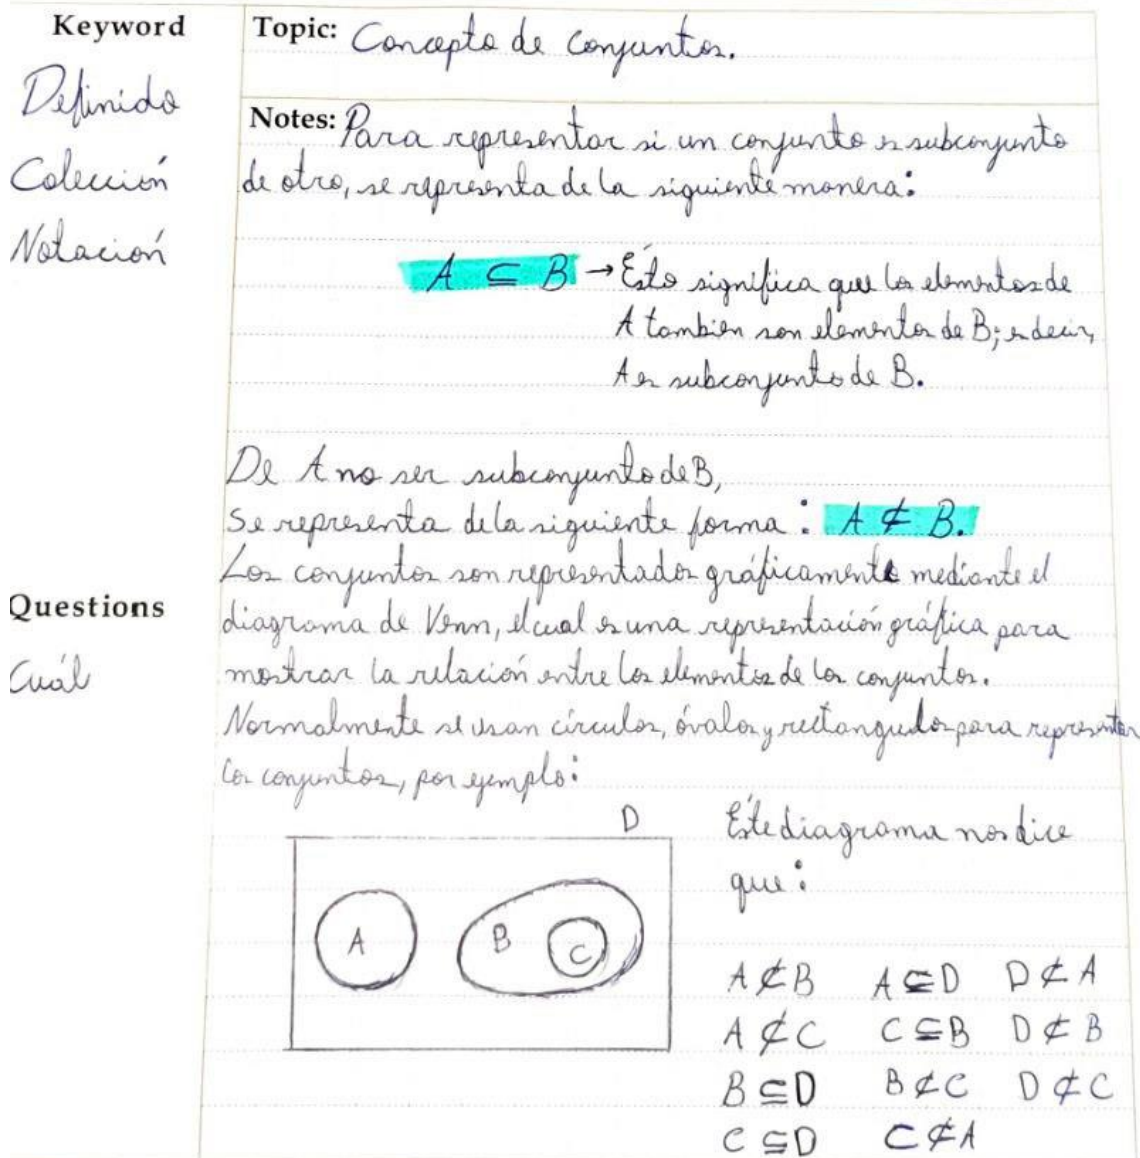 Keyword
Definido
Colección
Notación
Questions
Cuál
Topic: Concepto de conjuntos.
Notes: Para representar si un conjunto es subconjunto
de otro, se representa de la siguiente manera:
A ⊆ B → Esto significa que los elementos de
A tambien son elementos de B; es decir,
A es subconjunto de B.
De A no ser subconjunto de B,
se representa de la siguiente forma: A ⊄ B.
Los conjuntos son representados gráficamente mediante el
diagrama de Venn, el cual es una representación gráfica para
mostrar la relación entre los elementos de los conjuntos.
Normalmente se usan círculos, óvalos y rectangulos para representar
los conjuntos, por ejemplo:
D
A B C
Este diagrama nos dice
que:
A ⊄ B A ⊆ D D ⊄ A
A ⊄ C C ⊆ B D ⊄ B
B ⊆ D B ⊄ C D ⊄ C
C ⊆ D C ⊄ A